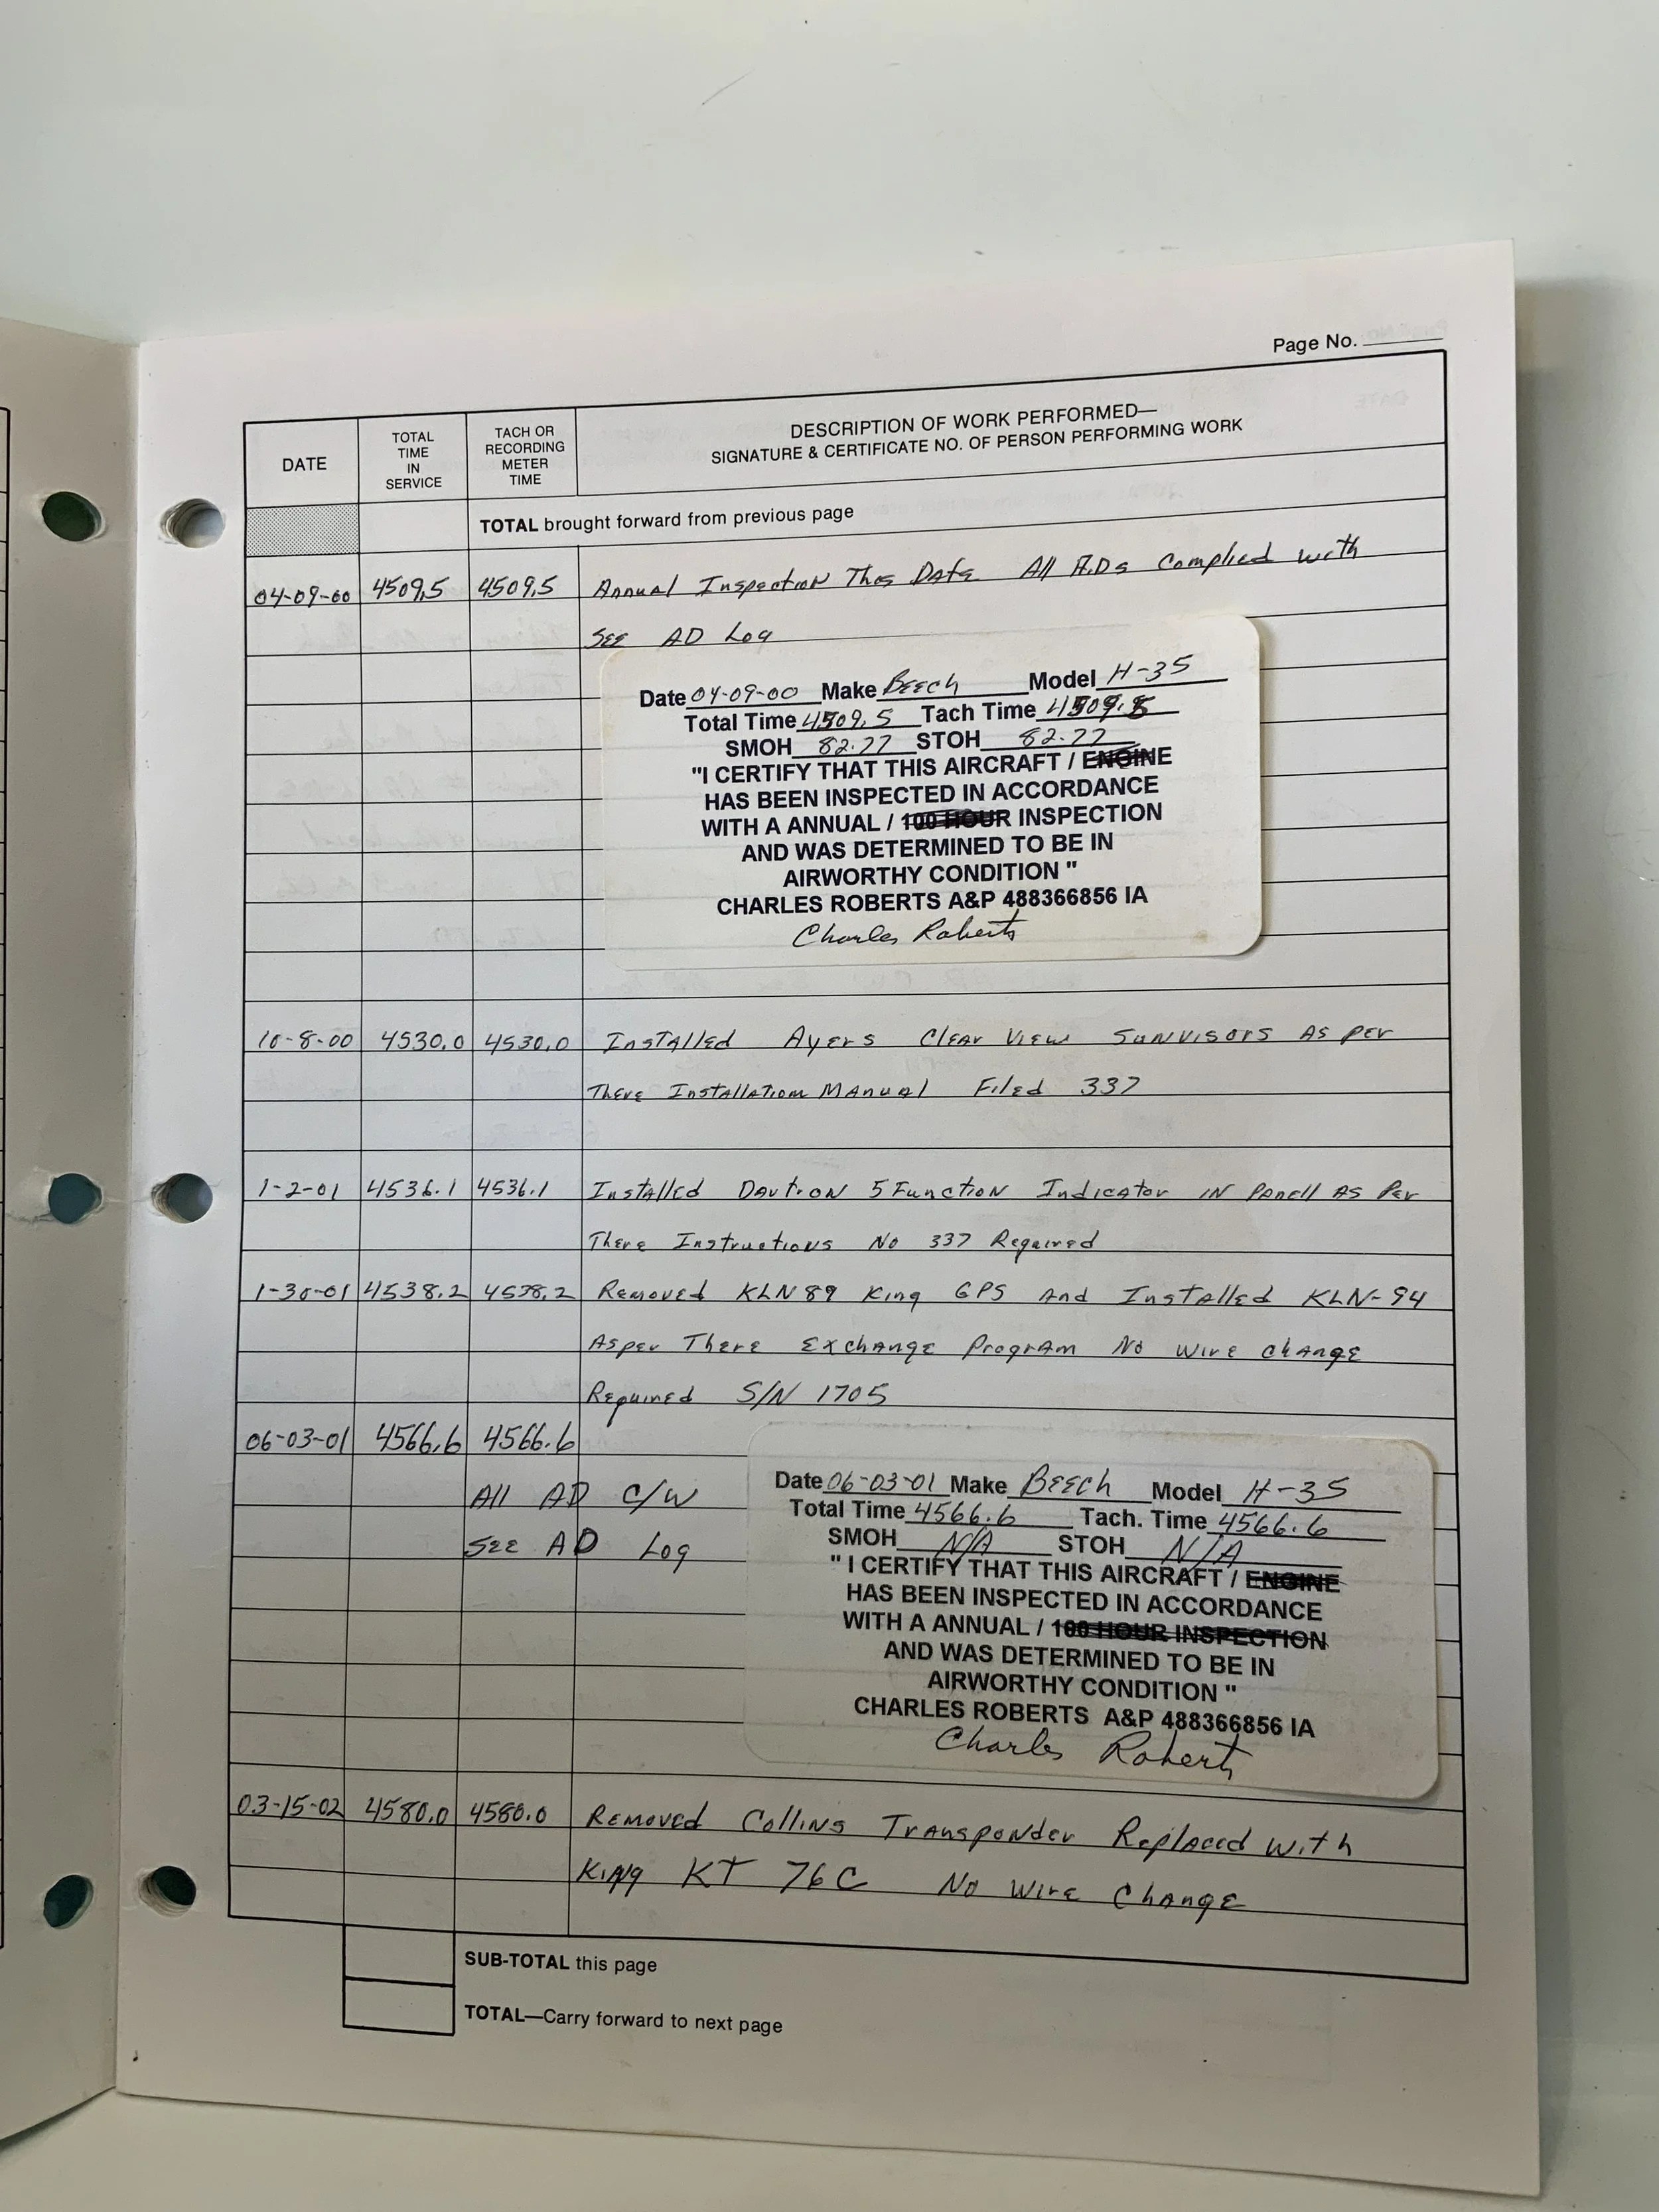 Page No.
DATE
TOTAL TIME IN SERVICE
TACH OR RECORDING METER TIME
DESCRIPTION OF WORK PERFORMED—
SIGNATURE & CERTIFICATE NO. OF PERSON PERFORMING WORK
TOTAL brought forward from previous page
04-09-00 4509.5 4509.5 Annual Inspection This Date All A.Ds Complied with
SEE AD Log
Date 04-09-00 Make Beech Model H-35
Total Time 4509.5 Tach Time 4509.5
SMOH 82.77 STOH 82.77
"I CERTIFY THAT THIS AIRCRAFT / ENGINE
HAS BEEN INSPECTED IN ACCORDANCE
WITH A ANNUAL / 100 HOUR INSPECTION
AND WAS DETERMINED TO BE IN
AIRWORTHY CONDITION "
CHARLES ROBERTS A&P 488366856 IA
Charles Roberts
10-8-00 4530.0 4530.0 Installed Ayers Clear View Sunvisors As per
There Installation Manual Filed 337
1-2-01 4536.1 4536.1 Installed Davtron 5 Function Indicator in Panell As Per
There Instructions No 337 Required
1-30-01 4538.2 4538.2 Removed KLN 89 King GPS And Installed KLN-94
As per There Exchange Program No wire change
Required S/N 1705
06-03-01 4566.6 4566.6
All AD C/W
SEE AD Log
Date 06-03-01 Make Beech Model H-35
Total Time 4566.6 Tach. Time 4566.6
SMOH N/A STOH N/A
" I CERTIFY THAT THIS AIRCRAFT / ENGINE
HAS BEEN INSPECTED IN ACCORDANCE
WITH A ANNUAL / 100 HOUR INSPECTION
AND WAS DETERMINED TO BE IN
AIRWORTHY CONDITION "
CHARLES ROBERTS A&P 488366856 IA
Charles Roberts
03-15-02 4580.0 4580.0 Removed Collins Transponder Replaced with
King KT 76C No wire Change
SUB-TOTAL this page
TOTAL—Carry forward to next page